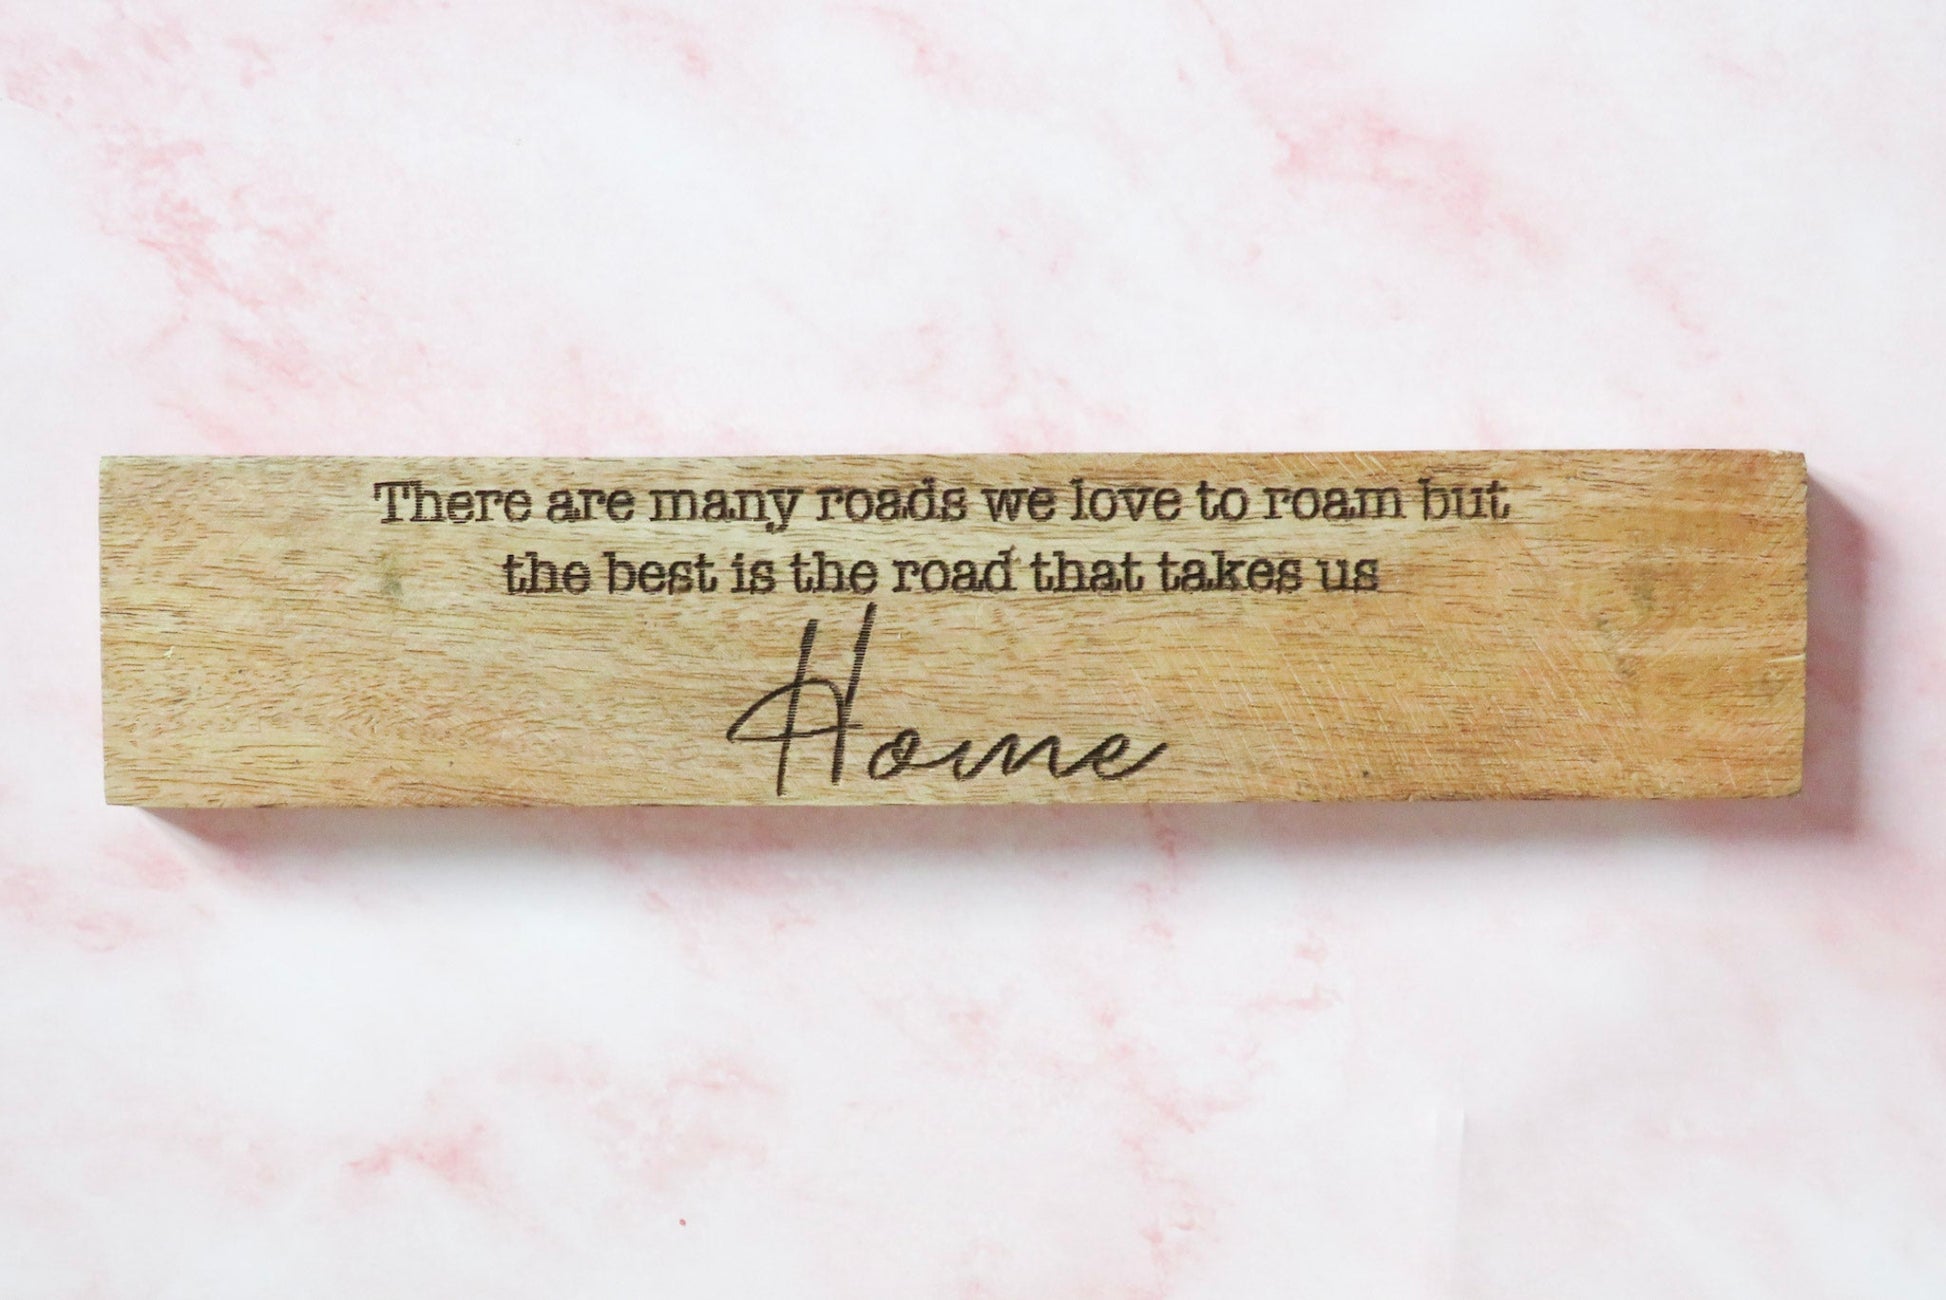 There are many roads we love to roam but
the best is the road that takes us
Home